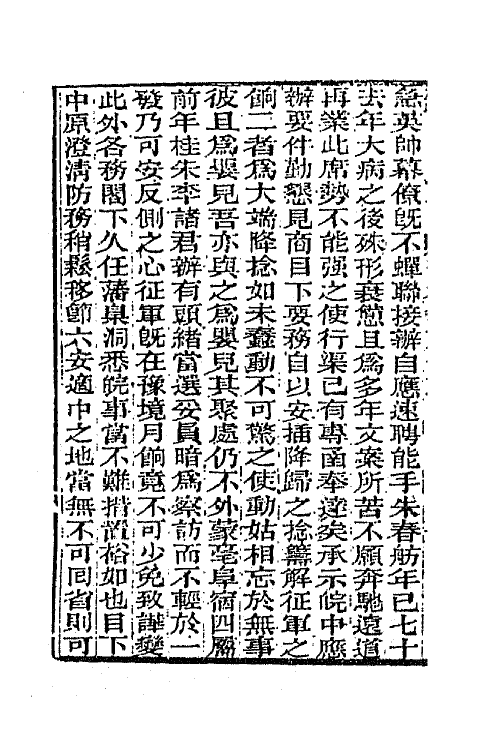 急英帥幕僚既不蟬聯接辦自應速聘能手朱春舫年已七十
去年大病之後殊形衰憊且爲多年文案所苦不願奔馳遠道
再業此席勢不能强之使行渠已有專函奉達矣承示皖中應
辦要件勤懇見商目下要務自以安插降歸之捻籌解征軍之
餉二者爲大端降捻如未蠢動不可驚之使動姑相忘於無事
彼且爲嬰兒吾亦與之爲嬰兒其聚處仍不外蒙亳阜宿四屬
前年桂朱李諸君辦有頭緒當選妥員暗爲察訪而不輕於一
發乃可安反側之心征軍既在豫境月餉竟不可少免致譁變
此外各務閣下久任藩臬洞悉皖事當不難措置裕如也目下
中原澄淸防務稍鬆移節六安適中之地當無不可回省則可